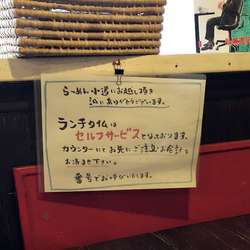 らーめん小湯にお越し頂き
誠にありがとうございます。
ランチタイムは
セルフサービスとなっております。
カウンターにてお先にご注文・お会計して
お待ち下さい。
番号でお呼びいたします